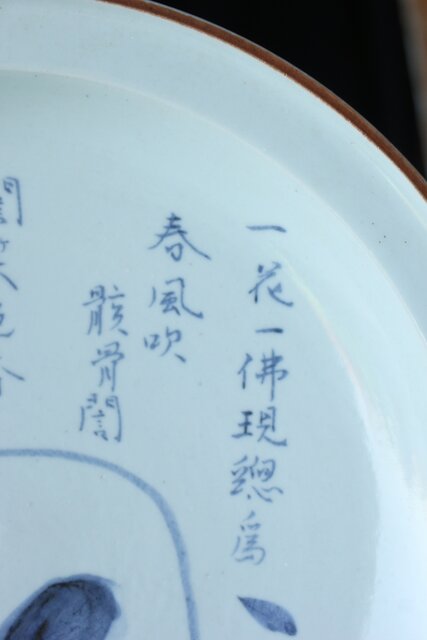 一花一佛現總為
春風吹
骸骨